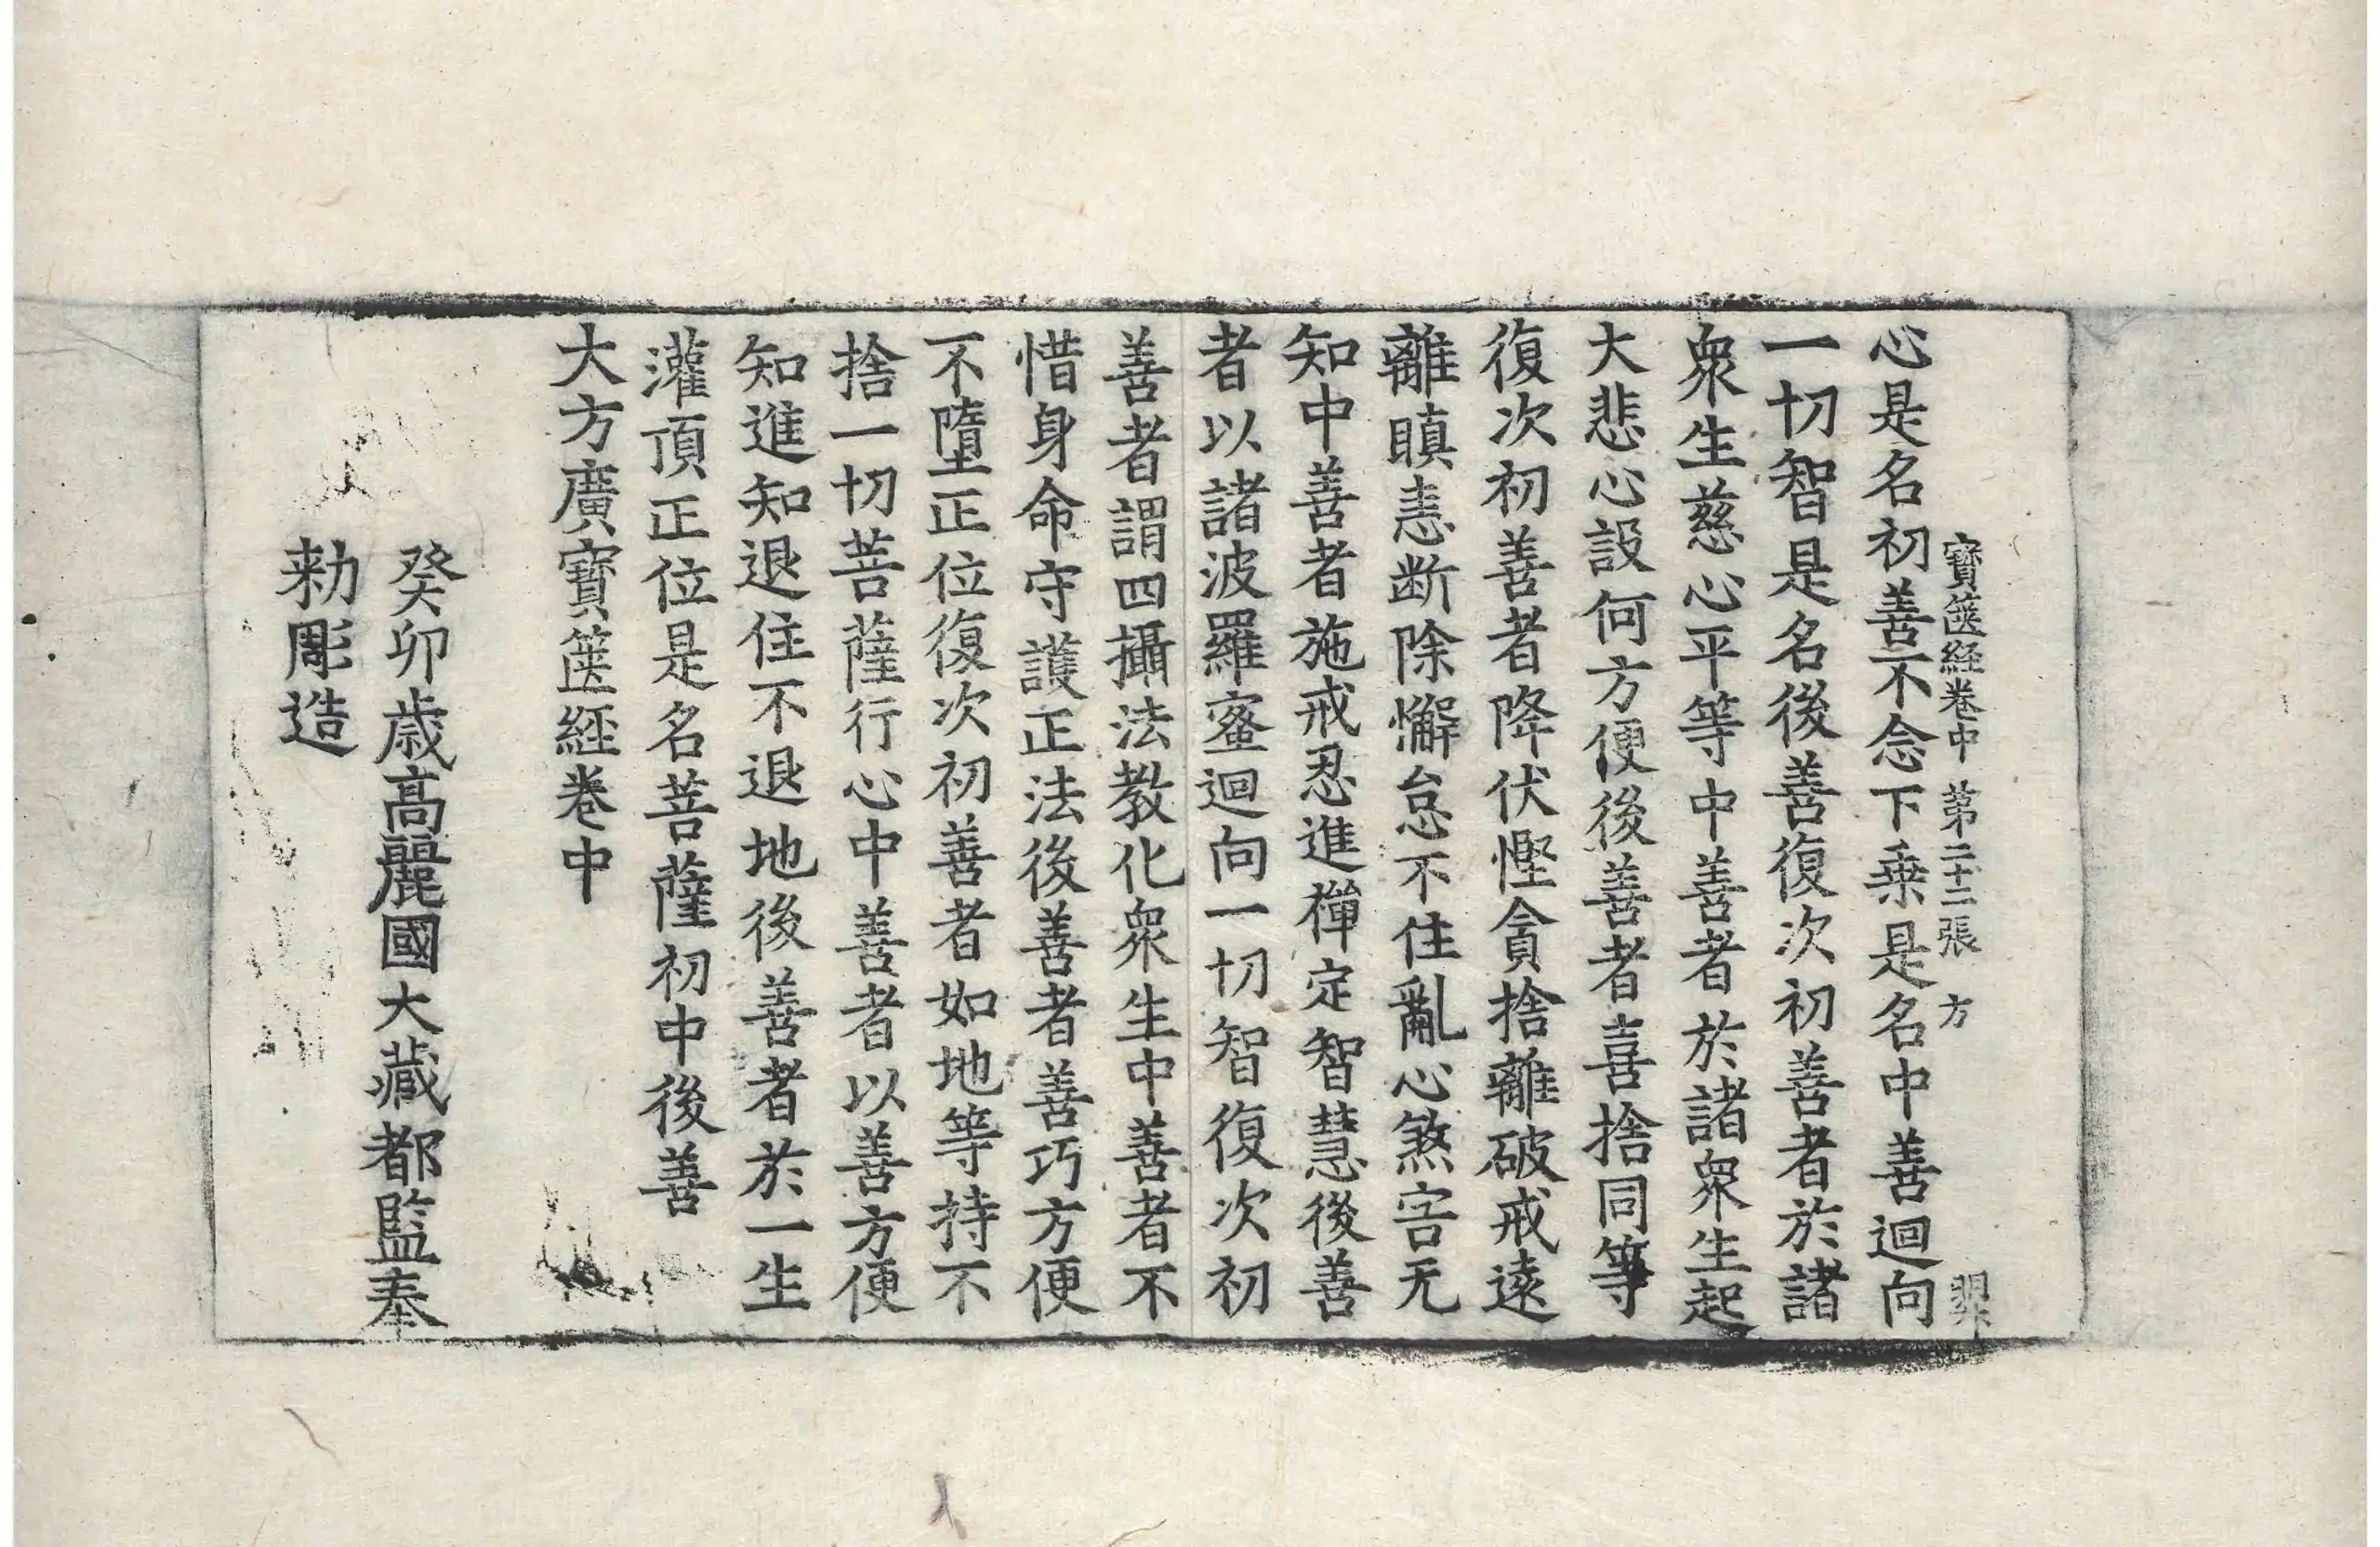 寶篋経卷中 第二十二張 方
心是名初善不念下乗是名中善迴向
一切智是名後善復次初善者於諸
衆生慈心平等中善者於諸衆生起
大悲心設何方便後善者喜捨同等
復次初善者降伏慳貪捨離破戒遠
離瞋恚断除懈怠不住亂心煞害无
知中善者施戒忍進禪定智慧後善
者以諸波羅蜜迴向一切智復次初
善者謂四攝法教化衆生中善者不
惜身命守護正法後善者善巧方便
不墮正位復次初善者如地等持不
捨一切菩薩行心中善者以善方便
知進知退住不退地後善者於一生
灌頂正位是名菩薩初中後善
大方廣寶篋経卷中
癸卯歳高麗國大藏都監奉
勑彫造